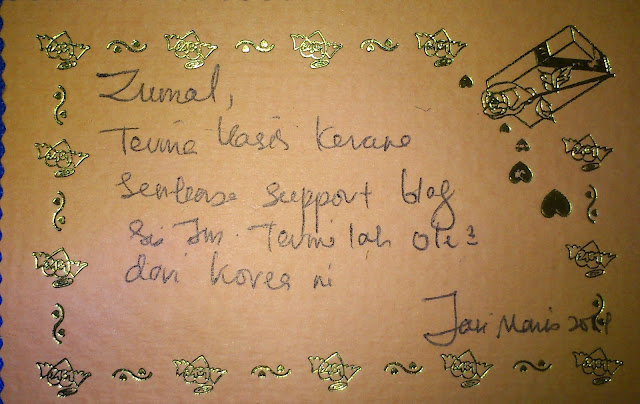 Zumal,
Terima Kasih Kerana
sentiasa support blog
sis Jm. Terimalah ole2
dari Korea ni
Jari Manis 2011